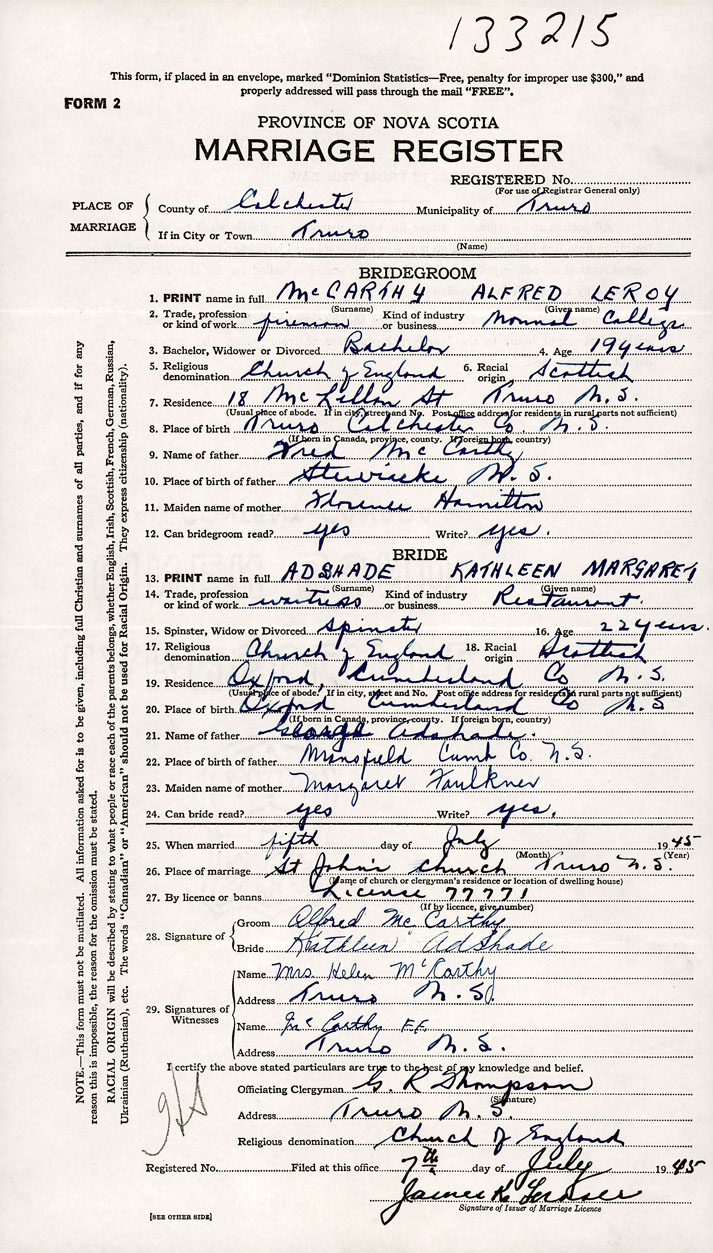 133215
This form, if placed in an envelope, marked “Dominion Statistics—Free, penalty for improper use $300,” and
properly addressed will pass through the mail “FREE”.
FORM 2
PROVINCE OF NOVA SCOTIA
MARRIAGE REGISTER
REGISTERED No.
(For use of Registrar General only)
PLACE OF MARRIAGE
County of Colchester Municipality of Truro
If in City or Town Truro
(Name)
BRIDEGROOM
1. PRINT name in full McCARTHY ALFRED LEROY
(Surname) (Given name)
2. Trade, profession or kind of work fireman Kind of industry or business Normal College
3. Bachelor, Widower or Divorced Bachelor 4. Age 19 years
5. Religious denomination Church of England 6. Racial origin Scottish
7. Residence 18 McLellan St Truro N.S.
(Usual place of abode. If in city, street and No. Post office address for residents in rural parts not sufficient)
8. Place of birth Truro Colchester Co, N.S.
(If born in Canada, province, county. If foreign born, country)
9. Name of father Fred McCarthy
10. Place of birth of father Stewiacke N.S.
11. Maiden name of mother Florence Hamilton
12. Can bridegroom read? yes Write? yes.
BRIDE
13. PRINT name in full ADSHADE KATHLEEN MARGARET
(Surname) (Given name)
14. Trade, profession or kind of work waitress Kind of industry or business Restaurant.
15. Spinster, Widow or Divorced Spinster 16. Age 22 years.
17. Religious denomination Church of England 18. Racial origin Scottish
19. Residence Oxford, Cumberland Co N.S.
(Usual place of abode. If in city, street and No. Post office address for residents in rural parts not sufficient)
20. Place of birth Oxford Cumberland Co N.S
(If born in Canada, province, county. If foreign born, country)
21. Name of father George Adshade.
22. Place of birth of father Mansfield Cumb Co. N.S.
23. Maiden name of mother Margaret Faulkner
24. Can bride read? yes Write? yes.
25. When married fifth day of July 1945
(Month) (Year)
26. Place of marriage St John's Church Truro N.S.
(Name of church or clergyman's residence or location of dwelling house)
27. By licence or banns License 77771
(If by licence, give number)
28. Signature of
Groom Alfred McCarthy
Bride Kathleen Adshade
29. Signatures of Witnesses
Name Mrs. Helen McCarthy
Address Truro N.S.
Name McCarthy F.F.
Address Truro N.S.
I certify the above stated particulars are true to the best of my knowledge and belief.
Officiating Clergyman G. R Thompson
(Signature)
Address Truro N.S.
Religious denomination Church of England
Registered No. Filed at this office 7th day of July 1945
James K.
Signature of Issuer of Marriage Licence
[SEE OTHER SIDE]
NOTE.—This form must not be mutilated. All information asked for is to be given, including full Christian and surnames of all parties, and if for any
reason this is impossible, the reason for the omission must be stated.
RACIAL ORIGIN will be described by stating to what people or race each of the parents belongs, whether English, Irish, Scottish, French, German, Russian,
Ukrainian (Ruthenian), etc. The words “Canadian” or “American” should not be used for Racial Origin. They express citizenship (nationality).